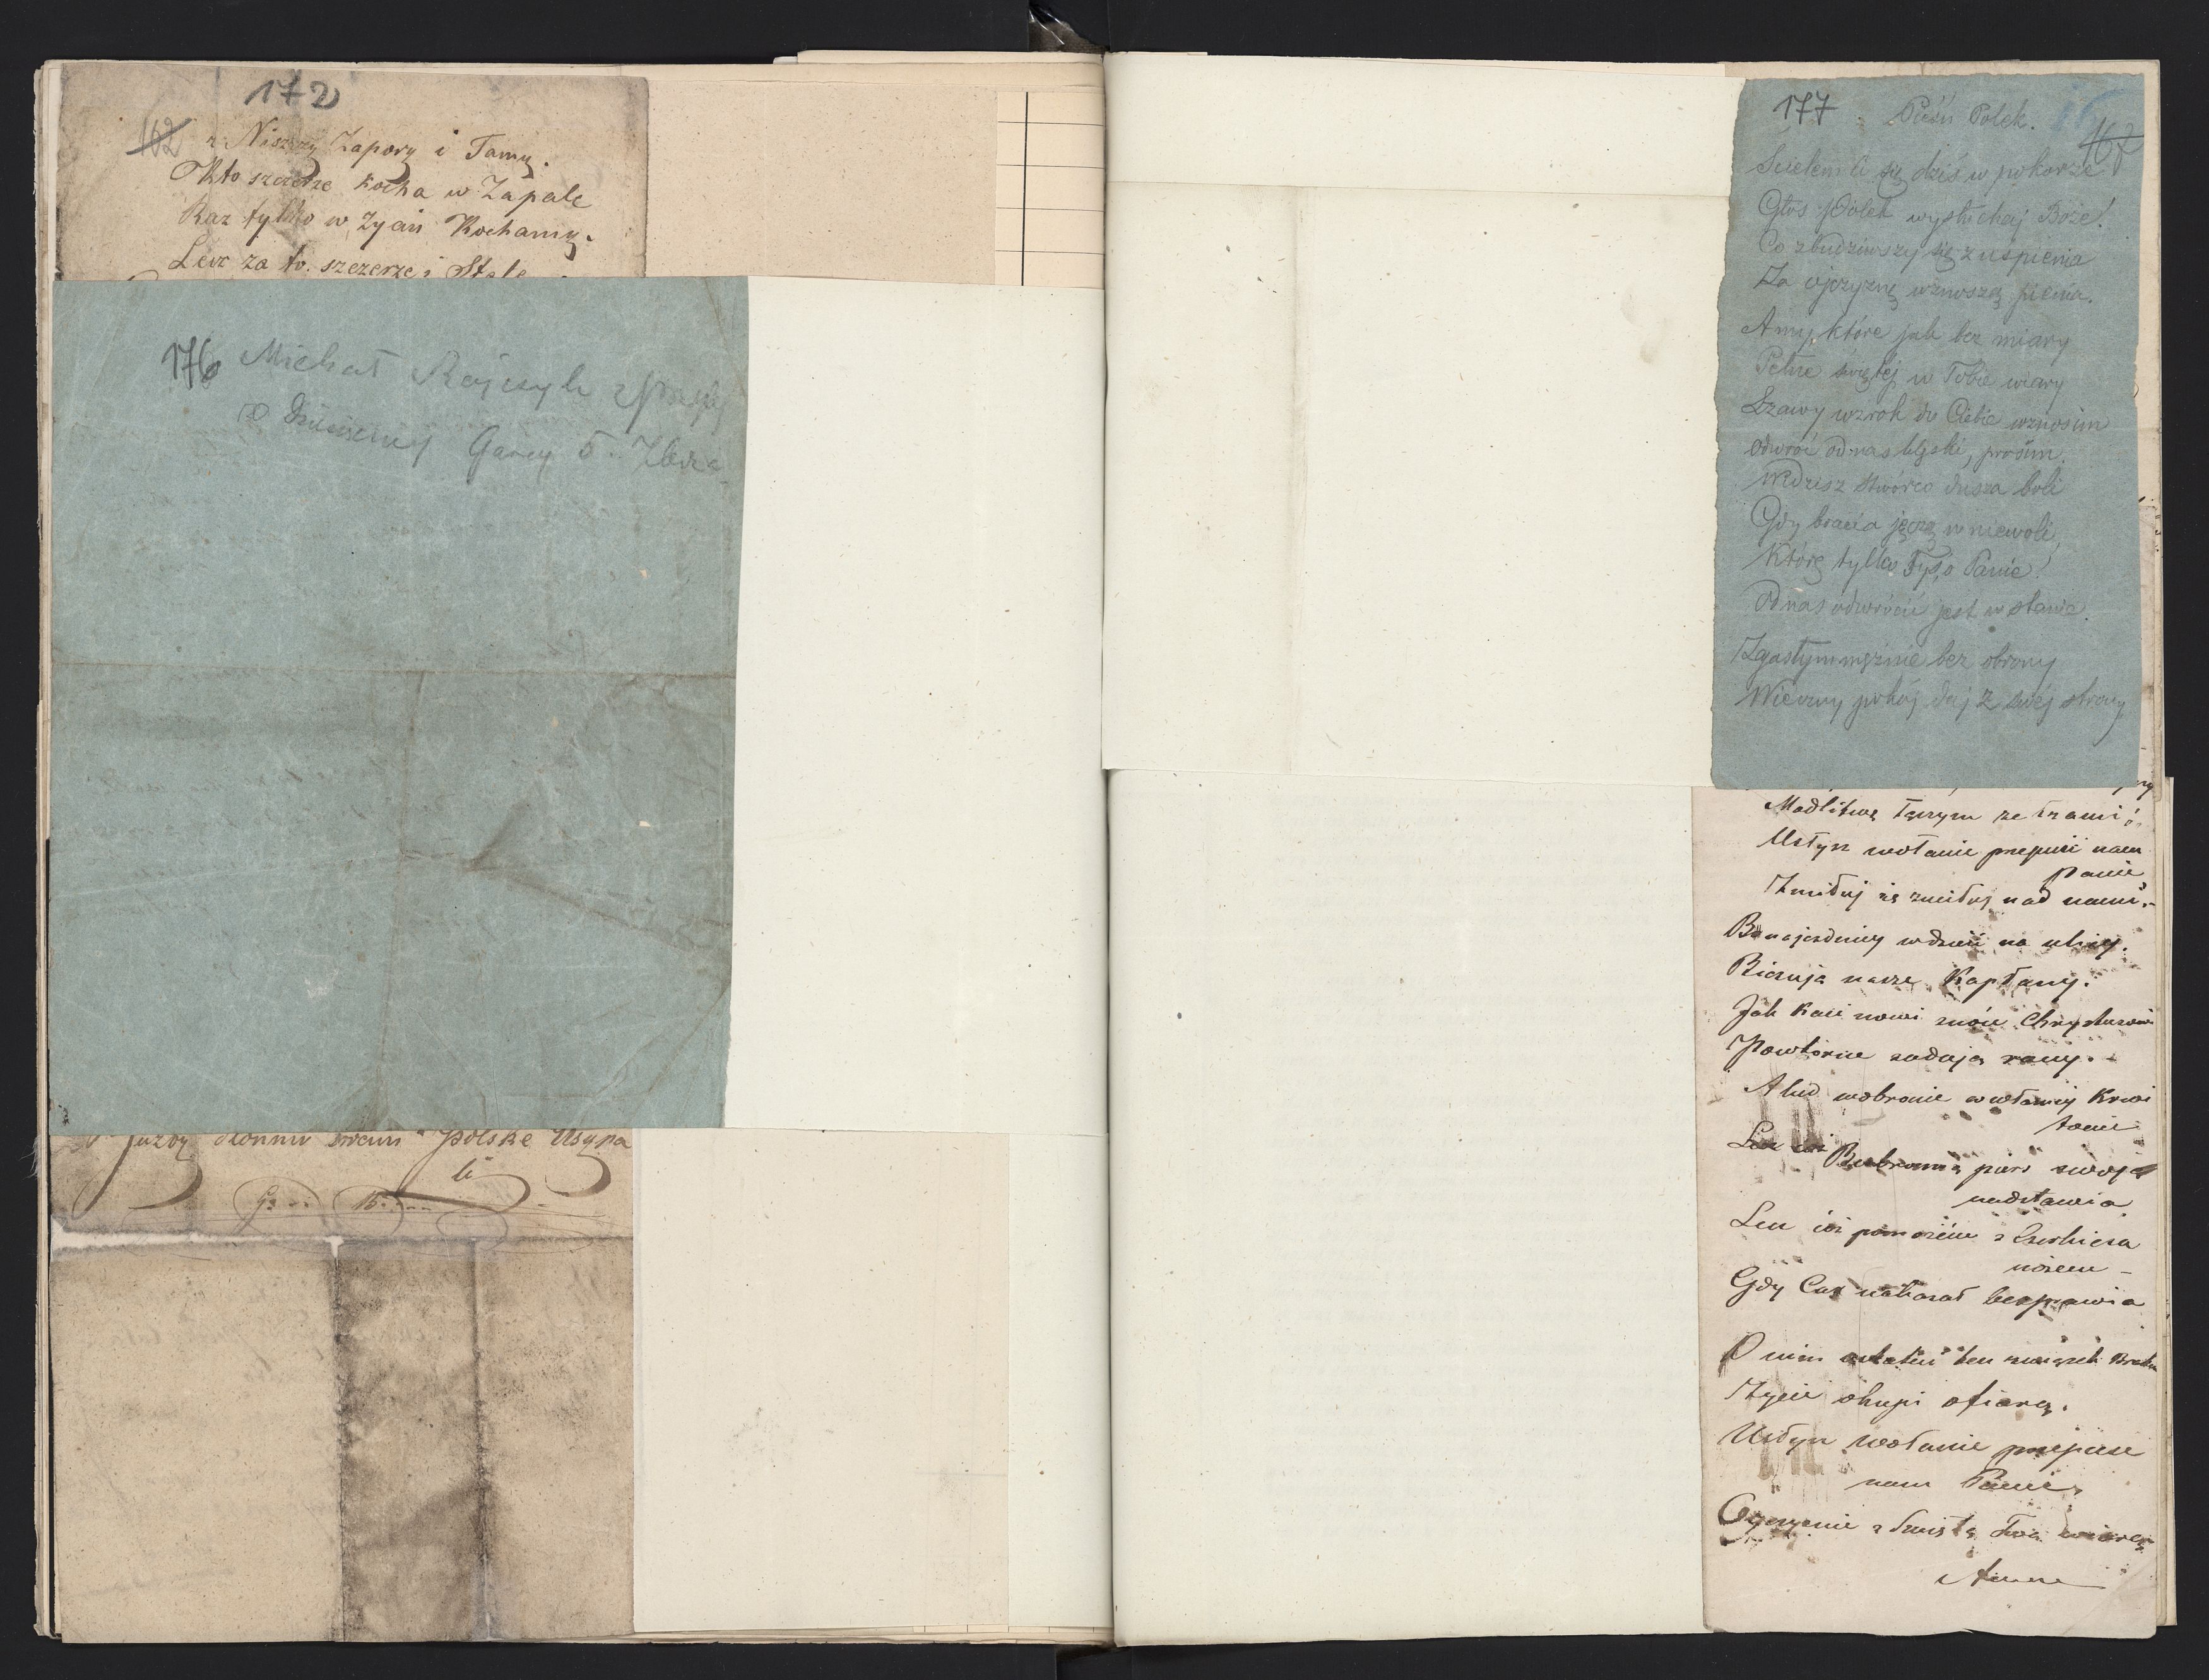 172
162
Niszczy Zapory i Tamy.
Kto szczerze kocha w Zapale
Raz tylko w Zyciu Kochamy.
Lecz za to szczerze i Stale
176 Michał Rajczyk z
Garcy 5.
Polske Usypa
li
15
177 Pieśń Polek.
167
Ścielem Ci się dziś w pokorze
Głos Polek wysłuchaj Boże!
Co zbudziwszy się z uśpienia
Za ojczyznę wznoszą pienia.
A my, które jak bez miary
Pełne świętej w Tobie wiary
Łzawy wzrok do Ciebie wznosim
Odwróć od nas klęski, prosim.
Widzisz Stwórco dusza boli
Gdy bracia jęczą w niewoli,
Którą tylko Ty, o Panie!
Od nas odwrócić jest w stanie.
Zgasłym mężnie bez obrony
Wieczny pokój daj z swéj strony
Modlitwę łączym ze łzami;
Usłysz wołanie przepuść nam
Panie
Zmiłuj się zmiłuj nad nami.
Bo najezdnicy w dzień na ulicy.
Biczują nasze Kapłany.
Jak Kaci nowi znów Chrystusowi
Powtórne zadają rany.
A lud w obronie w własnej Krwi
tonie
Bezbronną pierś swoją
nadstawia
Lecz cóż pomożem z Czerkiesa
nożem –
Gdy Car nakazał bezprawia
O nim ostatni ten związek Bratni
Życie okupi ofiarą.
Usłysz wołanie przepuść
nam Panie,
Ojczyznie z Świętą Twą wiarą
Amen